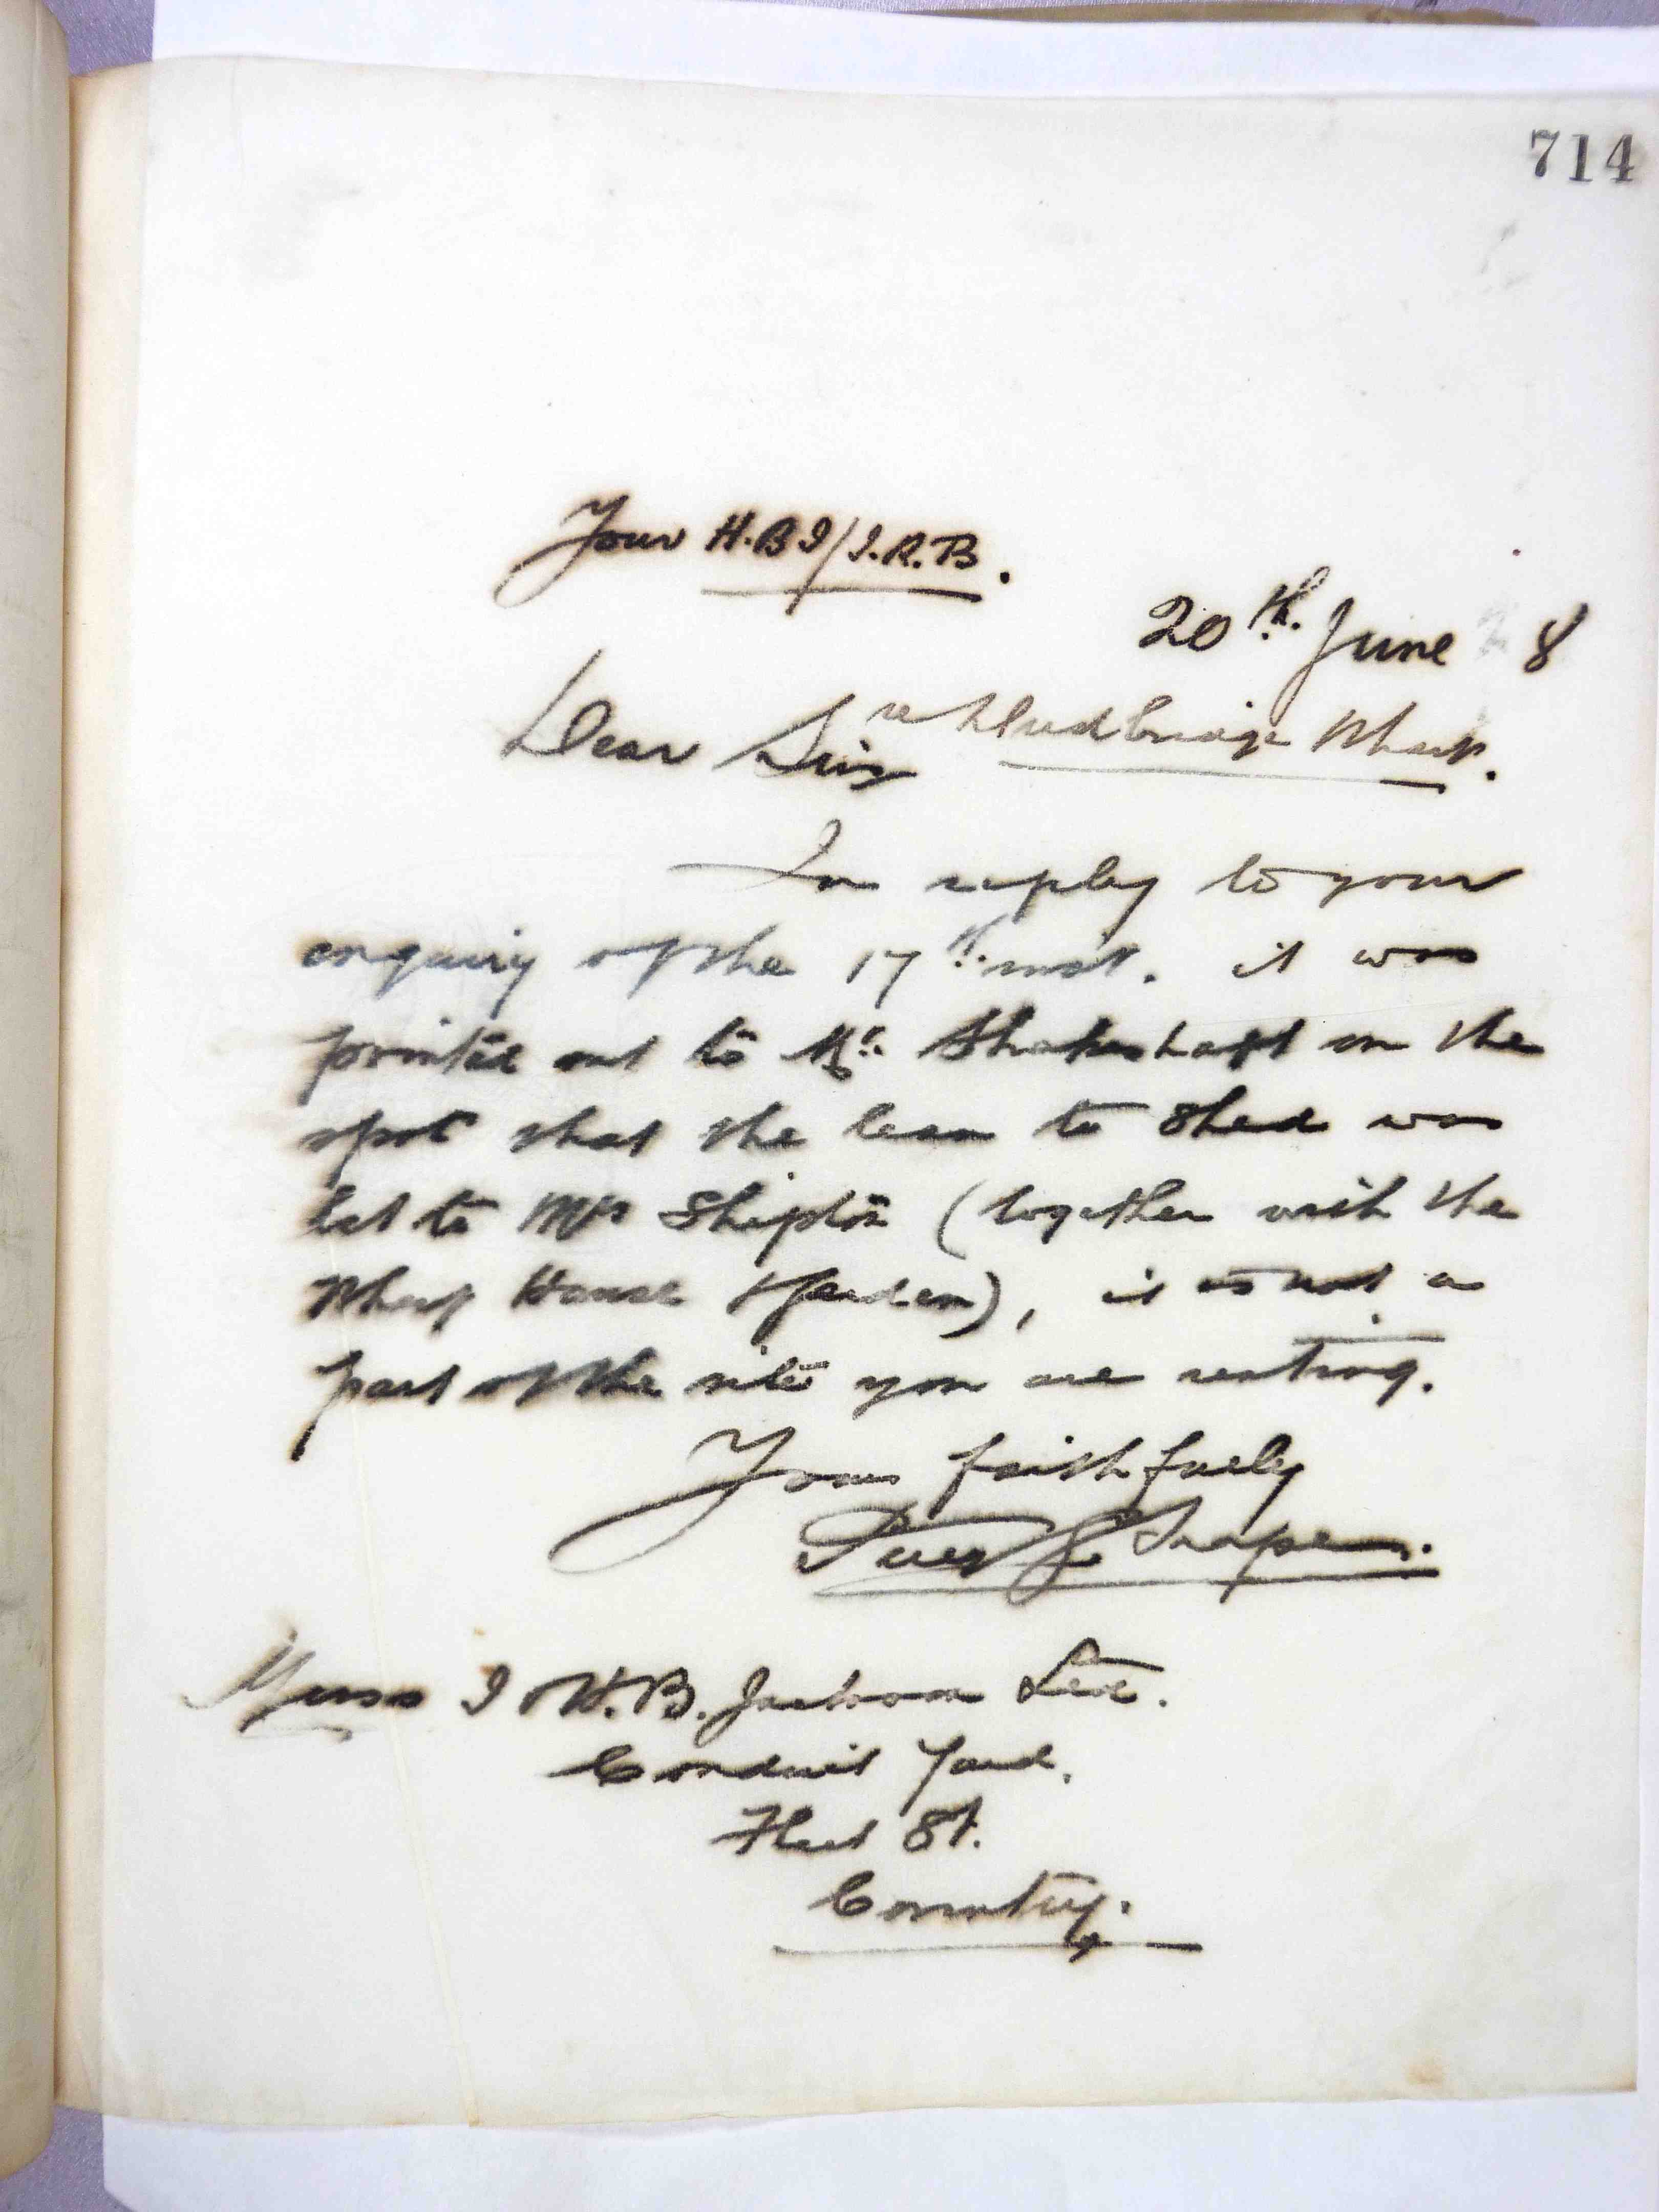 714
Your H.B.J/J.R.B.
20th. June 8
Dear Sirs re Studbridge Wharf.
In reply to your
enquiry of the 17th. inst. it was
pointed out to Mr. Shakeshaft on the
spot that the lean to Shed was
let to Mr Shipton (together with the
Wharf House & Garden), it is not a
part of the site you are renting.
Yours faithfully
Messrs J & H.B. Jackson Ltd.
Conduit Yard.
Fleet St.
Coventry.